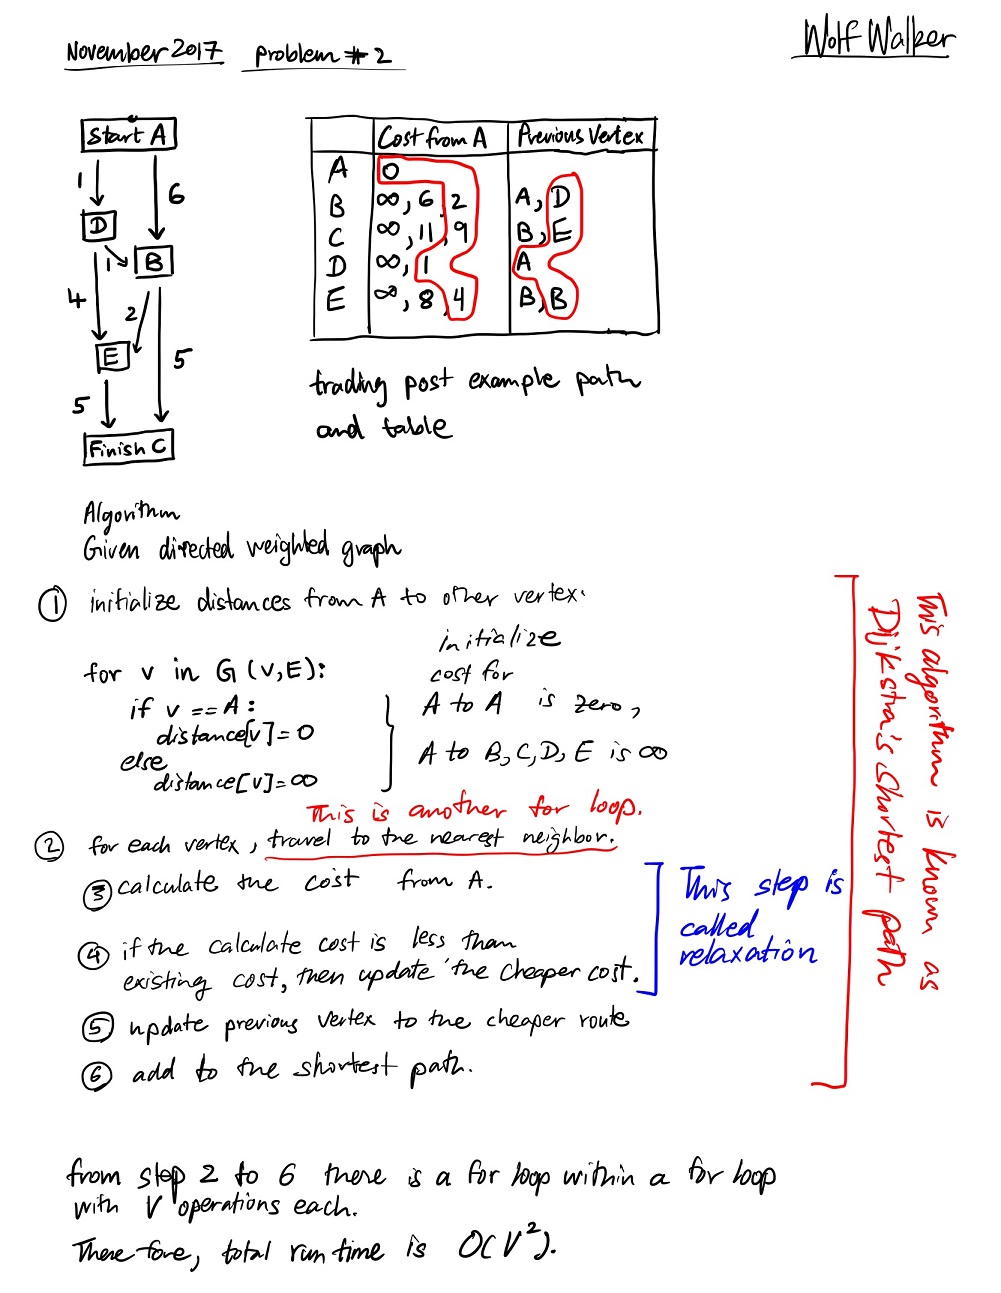 November 2017 Problem # 2
Wolf Walker
Start A
1
6
D
1
B
4
2
E
5
5
Finish C
Cost from A Previous Vertex
A 0
B ∞, 6, 2 A, D
C ∞, 11, 9 B, E
D ∞, 1 A
E ∞, 8, 4 B, B
trading post example path
and table
Algorithm
Given directed weighted graph
① initialize distances from A to other vertex.
for v in G (V,E):
if v == A:
distance[v]=0
else
distance[v]=∞
initialize
cost for
A to A is zero,
A to B, C, D, E is ∞
This is another for loop.
② for each vertex, travel to the nearest neighbor.
③ calculate the cost from A.
④ if the calculate cost is less than
existing cost, then update the cheaper cost.
This step is
called
relaxation
⑤ update previous vertex to the cheaper route
⑥ add to the shortest path.
This algorithm is known as
Dijkstra's shortest path
from step 2 to 6 there is a for loop within a for loop
with V operations each.
Therefore, total run time is O(V²).